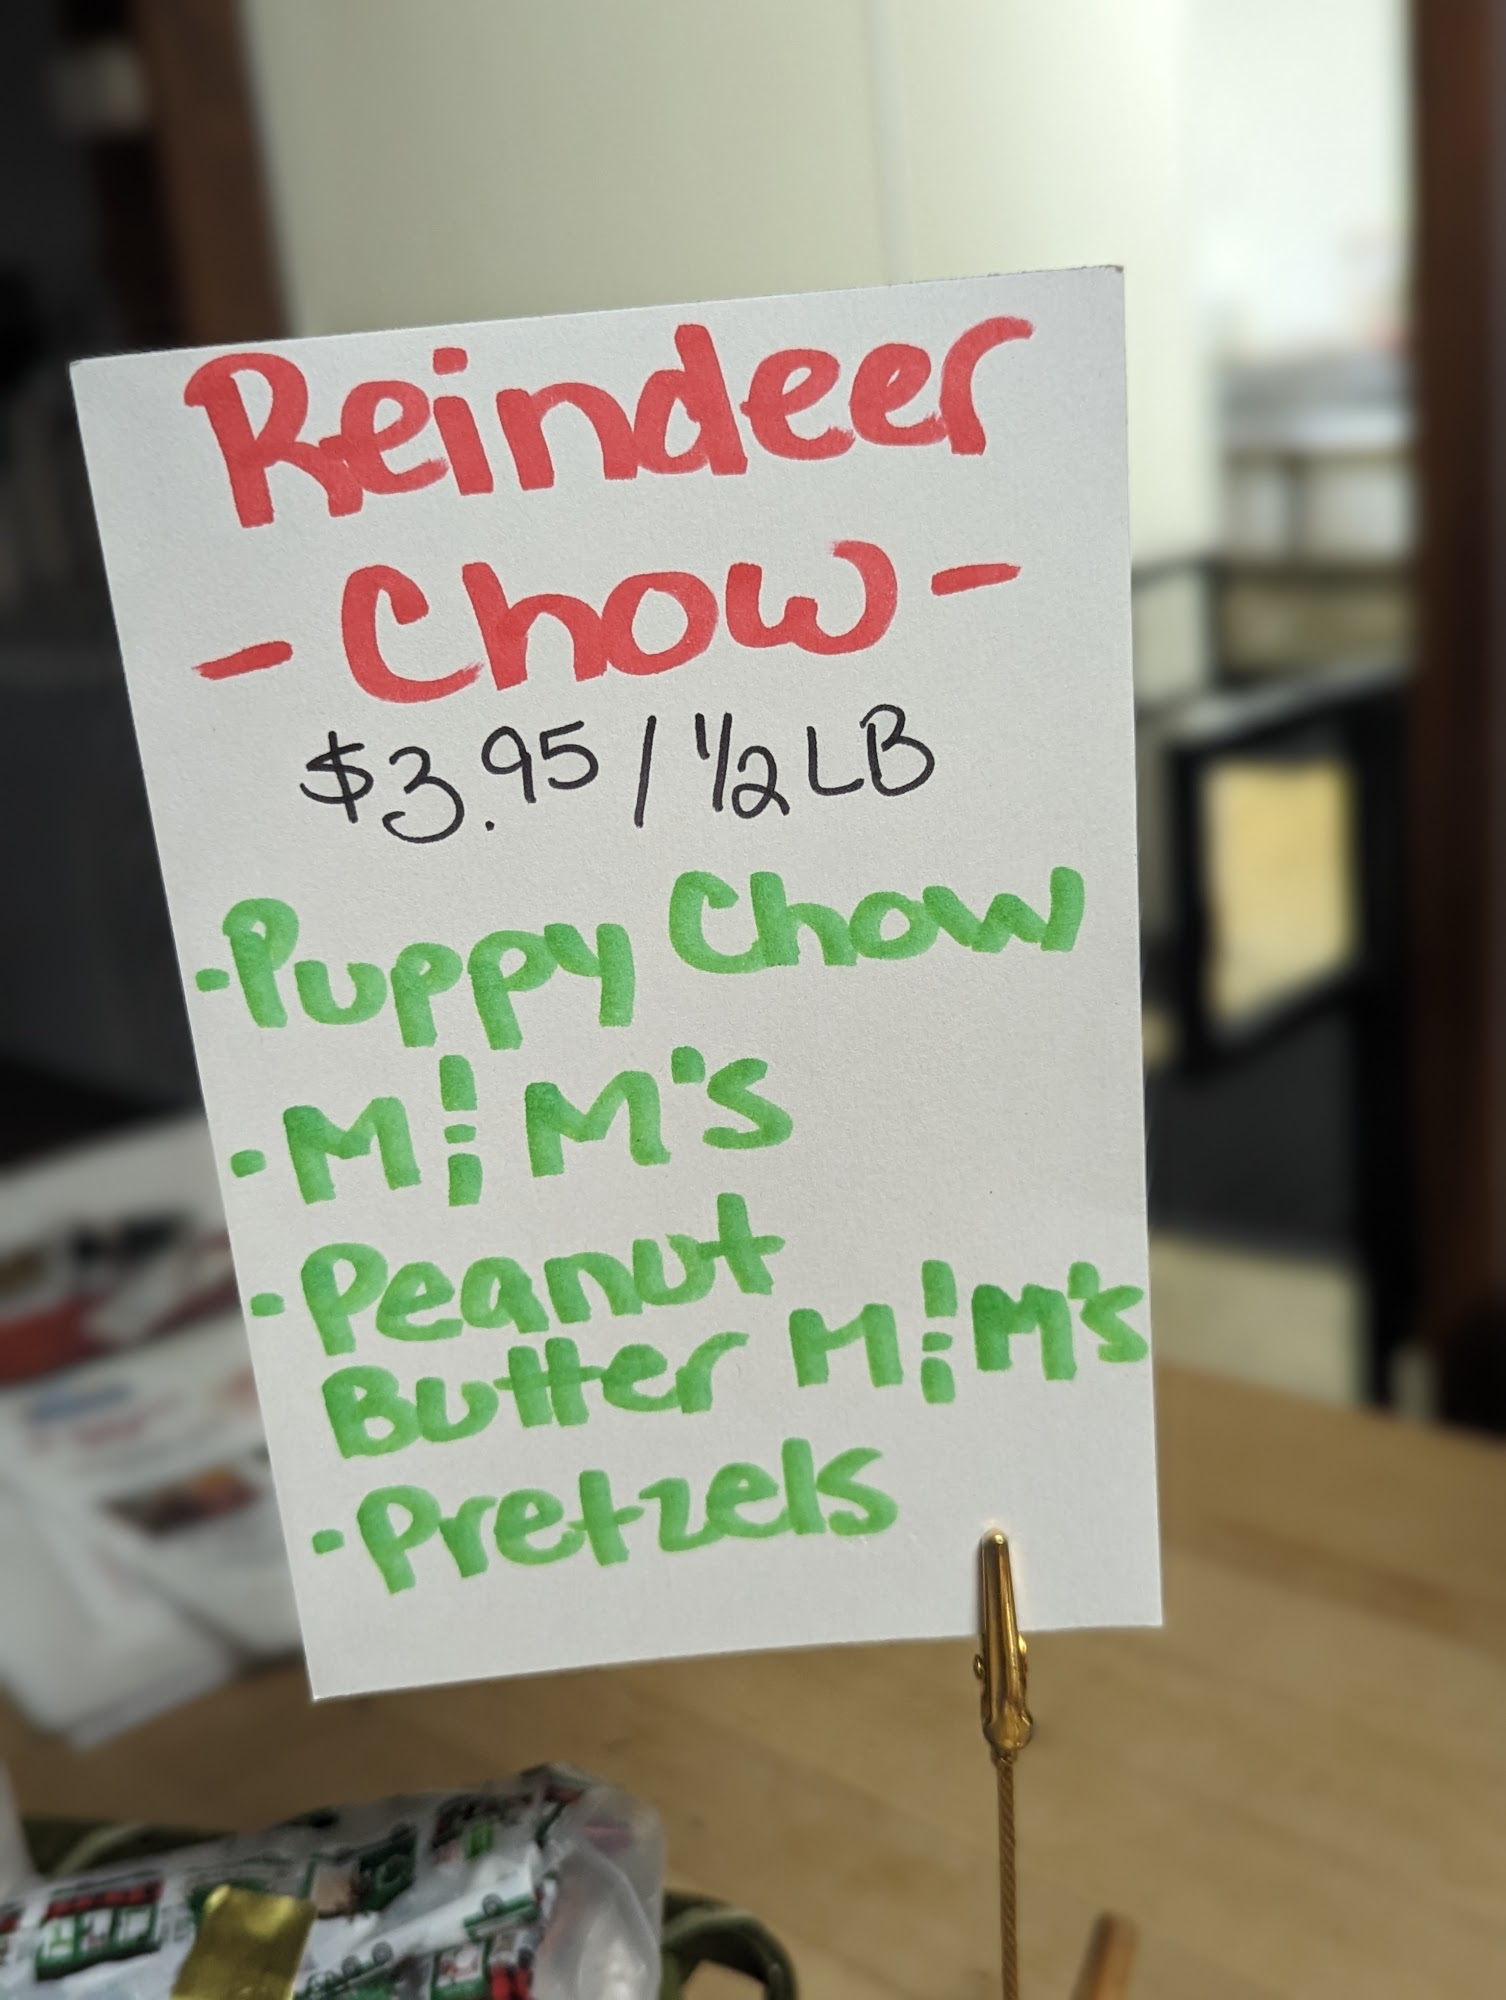 Reindeer
- Chow -
$3.95 / 1/2 LB
· Puppy Chow
· M&M's
· Peanut
Butter M&M's
· Pretzels